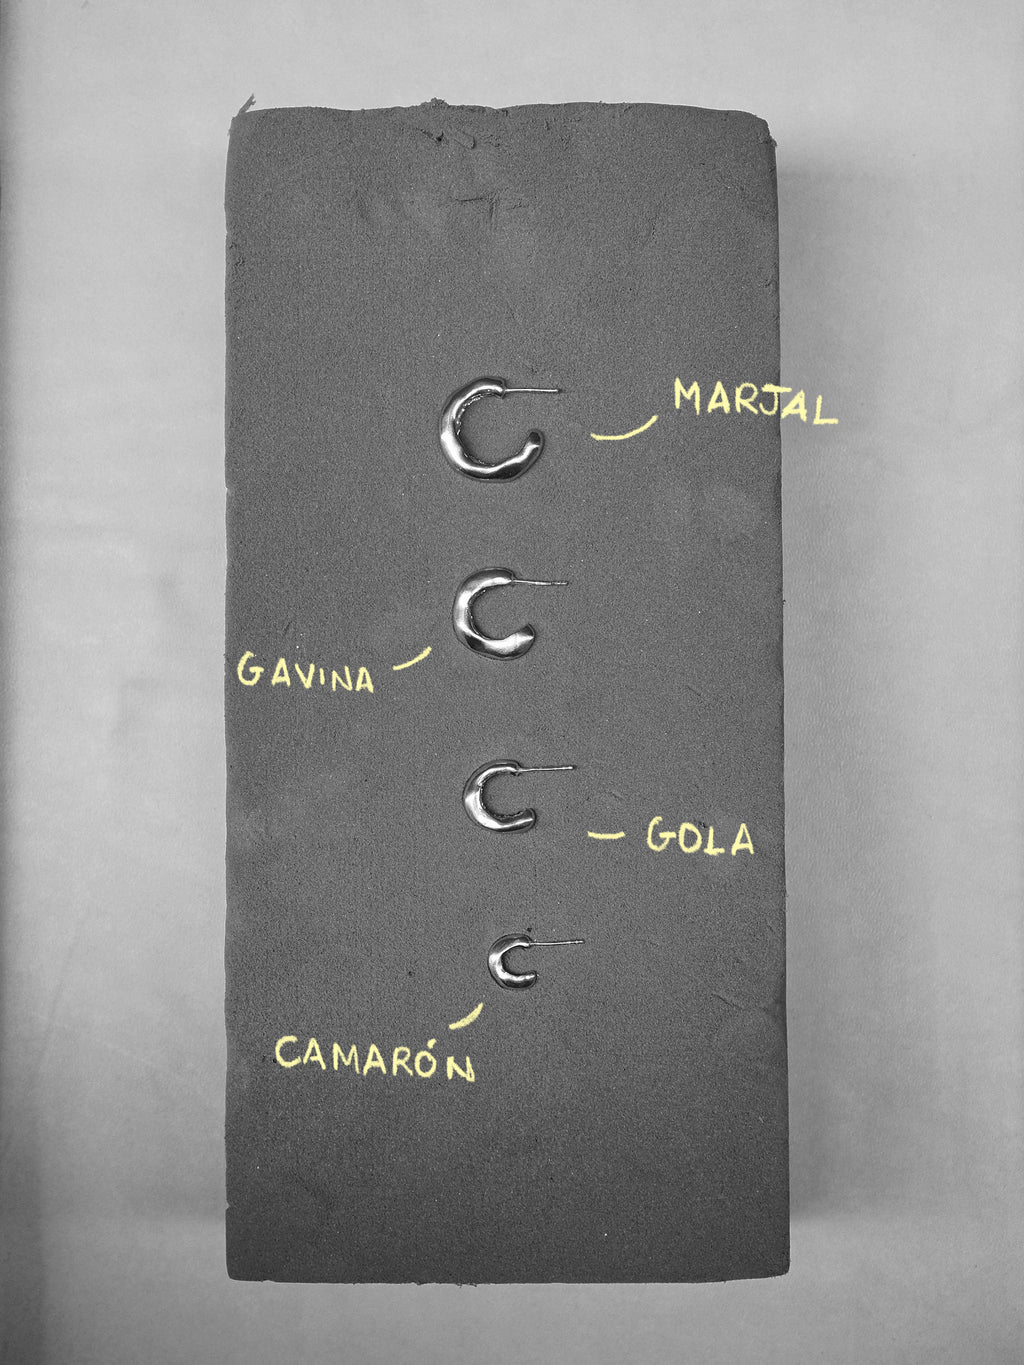 MARJAL
GAVINA
GOLA
CAMARÓN